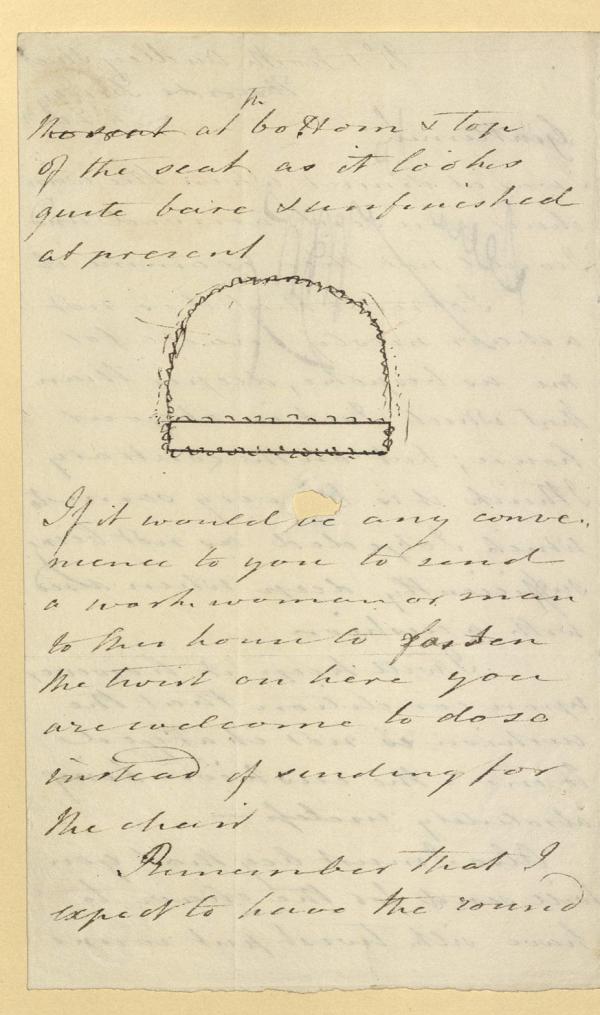 The
the seat at bottom & top
of the seat as it looks
quite bare & unfinished
at present
If it would be any conve-
nience to you to send
a work woman or man
to this house to fasten
the twist on here you
are welcome to do so
instead of sending for
the chair
Remember that I
expect to have the round